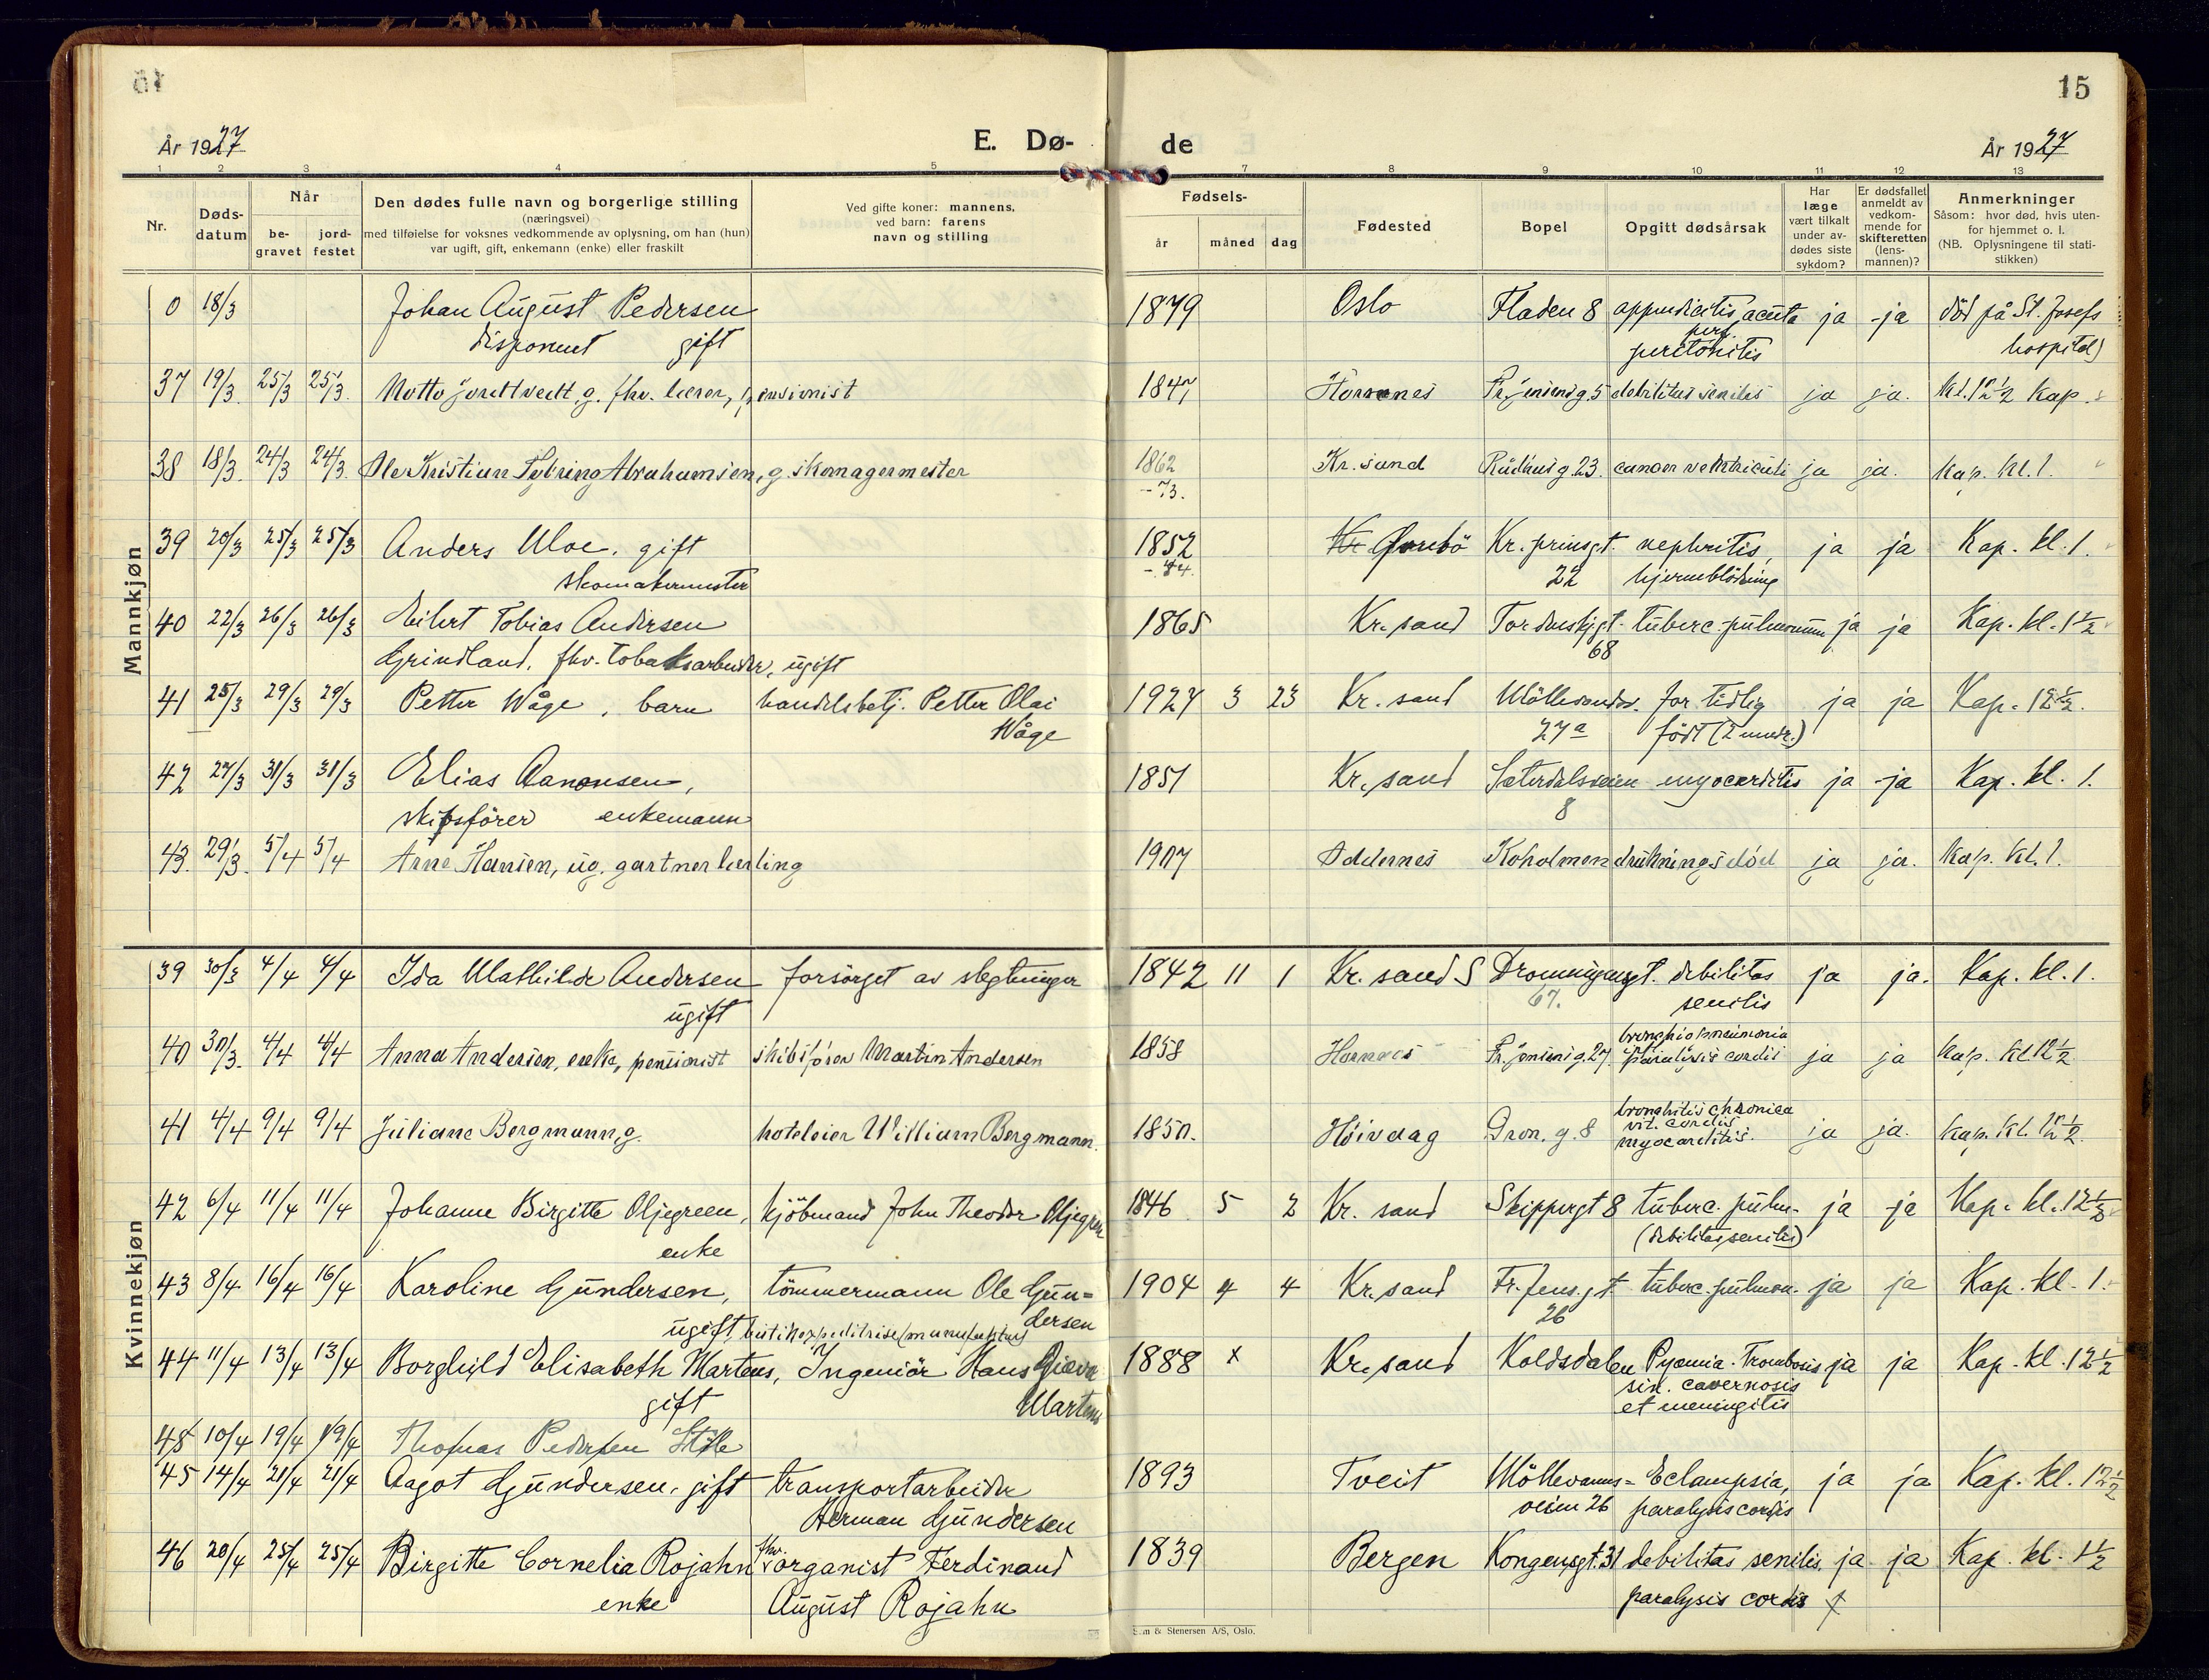 15
År 1927 E. Dø- de År 1927
1 2 3 4 5 7 8 9 10 11 12 13
Nr.
Døds-
datum
Når
be-
gravet
jord-
festet
Den dødes fulle navn og borgerlige stilling
(næringsvei)
med tilføielse for voksnes vedkommende av oplysning, om han (hun)
var ugift, gift, enkemann (enke) eller fraskilt
Ved gifte koner: mannens,
ved barn: farens
navn og stilling
Fødsels-
år måned dag
Fødested
Bopel
Opgitt dødsårsak
Har
læge
vært tilkalt
under av-
dødes siste
sykdom?
Er dødsfallet
anmeldt av
vedkom-
mende for
skifteretten
(lens-
mannen)?
Anmerkninger
Såsom: hvor død, hvis uten-
for hjemmet o. l.
(NB. Oplysningene til stati-
stikken)
Mannkjøn
0 18/3 Johan August Pedersen 1879 Oslo Fladen 8 appendicitis acuta ja ja död på St. Josefs
disponent gift perf. peritonitis hospital)
37 19/3 25/3 25/3 g. fhv. lærer, pensionist 1847 Hornnes Fr. Jensensg. 5 debilitas senilis ja ja. Kl. 12½ Kap.
38 18/3. 24/3 24/3. Ole Kristian Abrahamsen, g. skomagermester 1862 Kr. sand Rådhusg. 23. cancer ventriculi ja ja. Kap. Kl. 1.
-73.
39 20/3 25/3 25/3 Anders Moe, gift 1852 Kr. prinsgt. nephritis, ja ja Kap. kl. 1.
skomakermester 22 hjerneblödning
40 22/3 26/3 26/3 Eilert Tobias Andersen 1865 Kr. sand Tordenskjgt. tuberc. pulmonum ja ja Kap. kl. 1½
Grindland, fhv. Tobaksarbeider, ugift 68
41 25/3 29/3 29/3 Petter Wåge, barn handelsbetj. Petter Olai 1927 3 23 Kr. sand Möllevandsv. for tidlig ja ja Kap. 12½.
Wåge 27a född (2 mndr.)
42 27/3 31/3 31/3 Elias Aanonsen, 1851 Kr. sand Sæterdalsveien myocarditis ja ja Kap. kl. 1.
skipsförer enkemann 8
43. 29/3. 5/4 5/4 Arne Hansen, ug. gartnerlærling 1907 Oddernes Koholmen drukningsdød ja ja. Kap. Kl. 1.
Kvinnekjøn
39 30/3 4/4 4/4 Ida Mathilde Andersen forsörget av slegtninger 1842 11 1 Kr. sand S Dronningensgt. debilitas ja ja. Kap. kl. 1.
ugift 67. senilis
40 30/3. 4/4 4/4 Anna Andersen, enke, pensionist skibsfører Martin Andersen 1858 Hornnes Fr. Jensensg. 27. bronchiopneumonia ja ja Kap. Kl 12½
paralysis cordis
41 4/4 9/4 9/4 Juliane Bergmann, g. hoteleier William Bergmann. 1850. Høivaag Dron. g. 8 bronchitis chronica ja ja. Kap. Kl. 12½.
vit. cordis
myocarditis.
42 6/4 11/4 11/4 Johanne Birgitte Oljegreen, kjöbmand John Theodor Oljegren 1846 5 2 Kr. sand Skippergt 8 tuberc. pulm. ja ja Kap. kl. 12½
enke (debilitas senilis)
43 8/4 16/4 16/4 Karoline Gundersen, tömmermann Ole Gun= 1904 4 4 Kr. sand Fr. Jens. gt tuberc. pulmon. ja ja Kap. kl. 1.
ugift, butikexpeditrise (manufaktur) dersen 26
44 11/4 13/4 13/4 Borghild Elisabeth Martens, Ingeniör Hans Martens 1888 x Kr. sand Koldsdalen Pyæmia. Trombosis ja ja Kap. kl. 12½
gift sin. cavernosis
et meningitis
45 10/4 19/4 19/4 Thomas Pedersen
45 14/4 21/4 21/4 Aagot Gundersen, gift transportarbeider 1893 Tveit Möllevanns= Eclampsia, ja ja Kap. kl. 12½
Herman Gundersen veien 26 paralysis cordis
46 20/4 25/4 25/4 Birgitte Cornelia Rojahn fhv. organist Ferdinand 1839 Bergen Kongensgt. 31 debilitas senilis, ja ja Kap. kl. 1½
enke August Rojahn paralysis cordis
Sem & Stenersen A/S, Oslo.